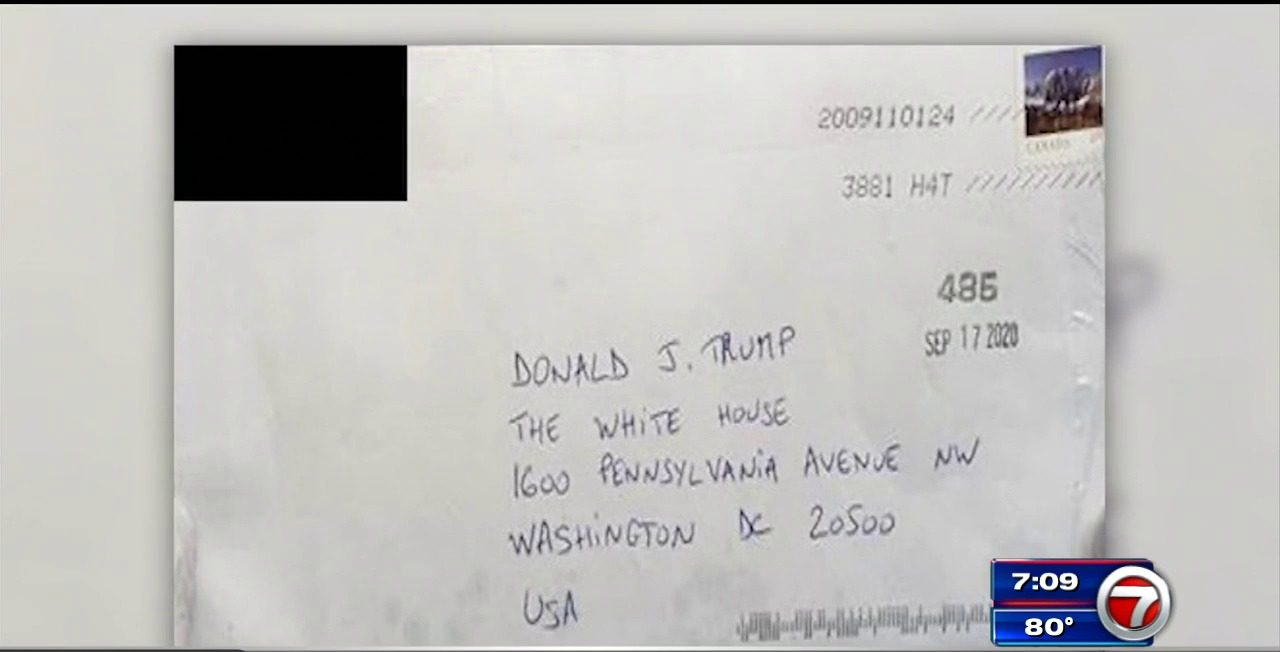 2009110124
CANADA
3881 H4T
486
SEP 17 2020
DONALD J. TRUMP
THE WHITE HOUSE
1600 PENNSYLVANIA AVENUE NW
WASHINGTON DC 20500
USA
7:09
80°
7